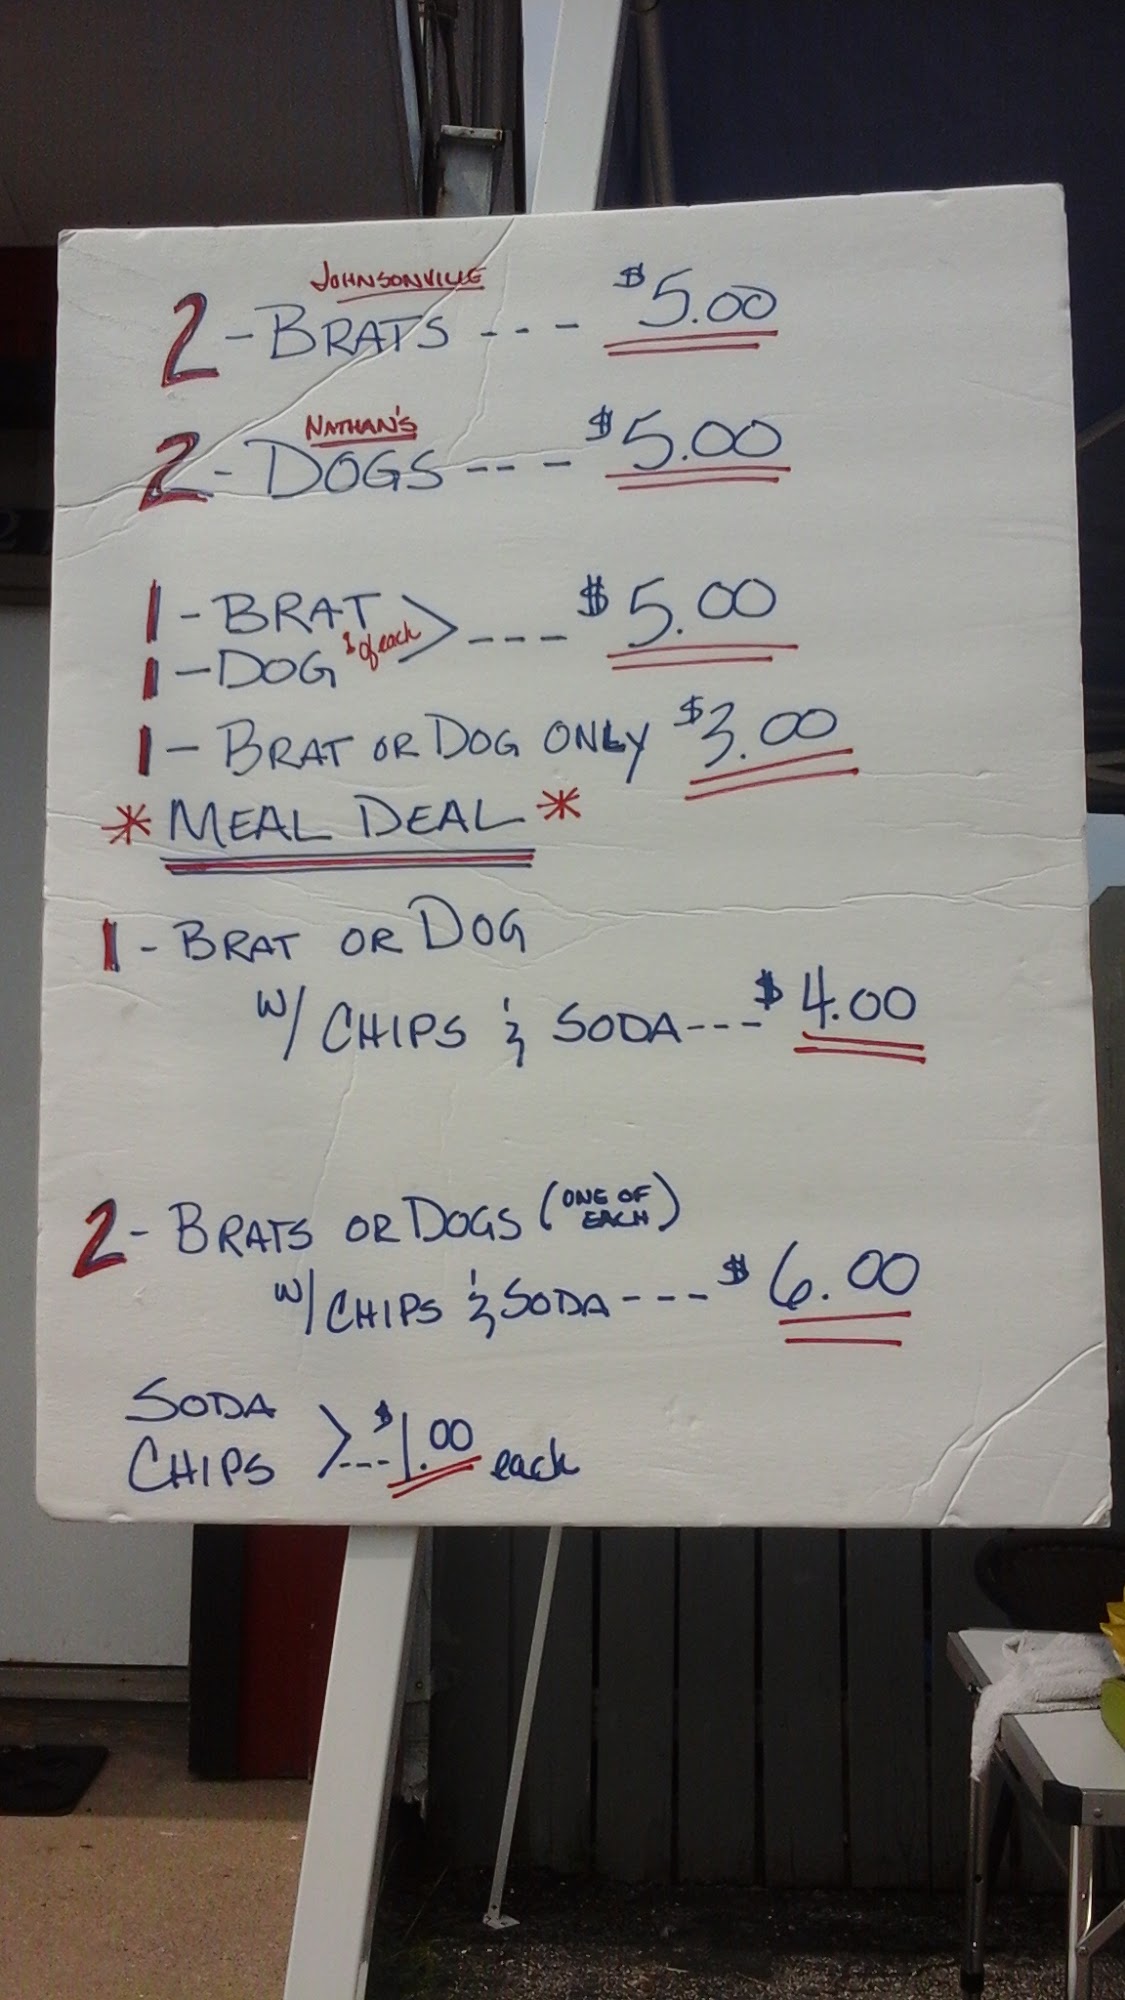 JOHNSONVILLE
2 - BRATS --- $5.00
NATHAN'S
2 - DOGS --- $5.00
1 - BRAT
1 - DOG 1 of each > --- $5.00
1 - BRAT OR DOG ONLY $3.00
* MEAL DEAL *
1 - BRAT OR DOG
W/ CHIPS & SODA --- $4.00
2 - BRATS OR DOGS (ONE OF EACH)
W/ CHIPS & SODA --- $6.00
SODA
CHIPS > --- $1.00 each